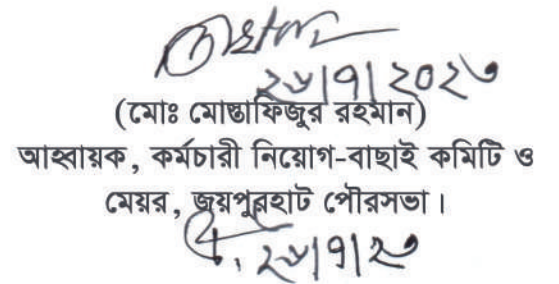 ২৬/৭/২০২৩
(মোঃ মোস্তাফিজুর রহমান)
আহ্বায়ক, কর্মচারী নিয়োগ-বাছাই কমিটি ও
মেয়র, জয়পুরহাট পৌরসভা।
২৬/৭/২৩